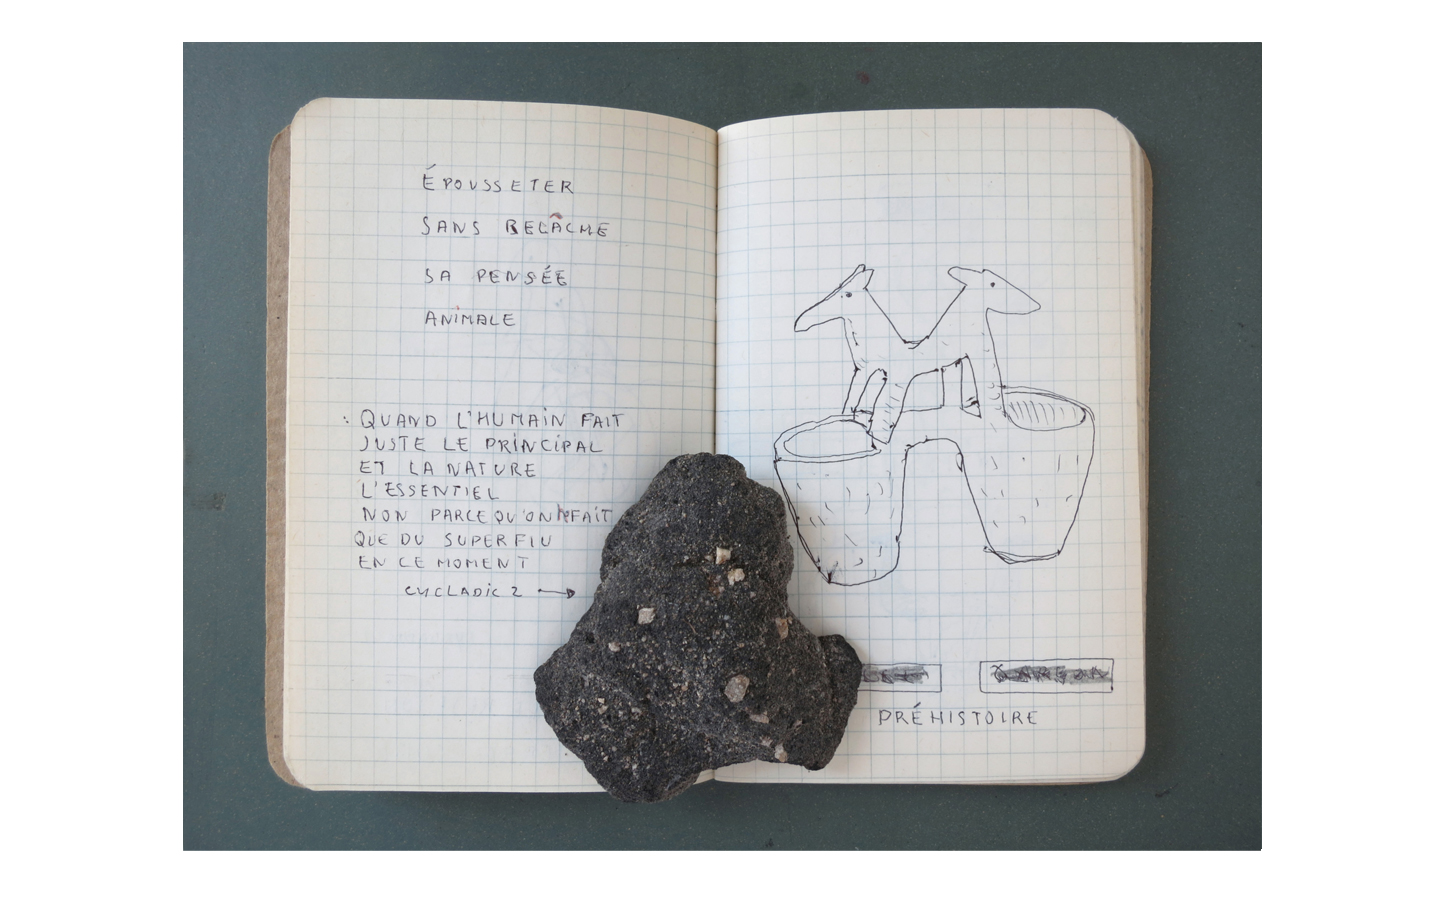 ÉPOUSSETER
SANS RELÂCHE
SA PENSÉE
ANIMALE
: QUAND L'HUMAIN FAIT
JUSTE LE PRINCIPAL
ET LA NATURE
L'ESSENTIEL
NON PARCE QU'ON FAIT
QUE DU SUPERFLU
EN CE MOMENT
CYCLADIC 2 →
PRÉHISTOIRE